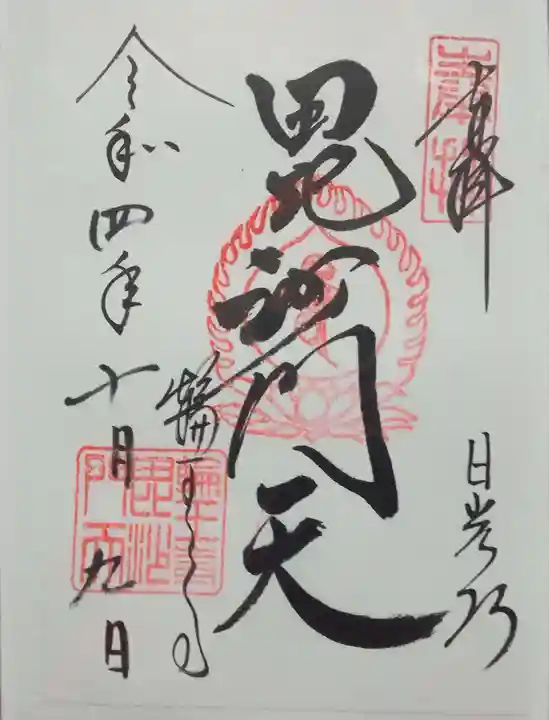 奉拝
日光山
毘沙門天
輪王寺
令和四年十月九日